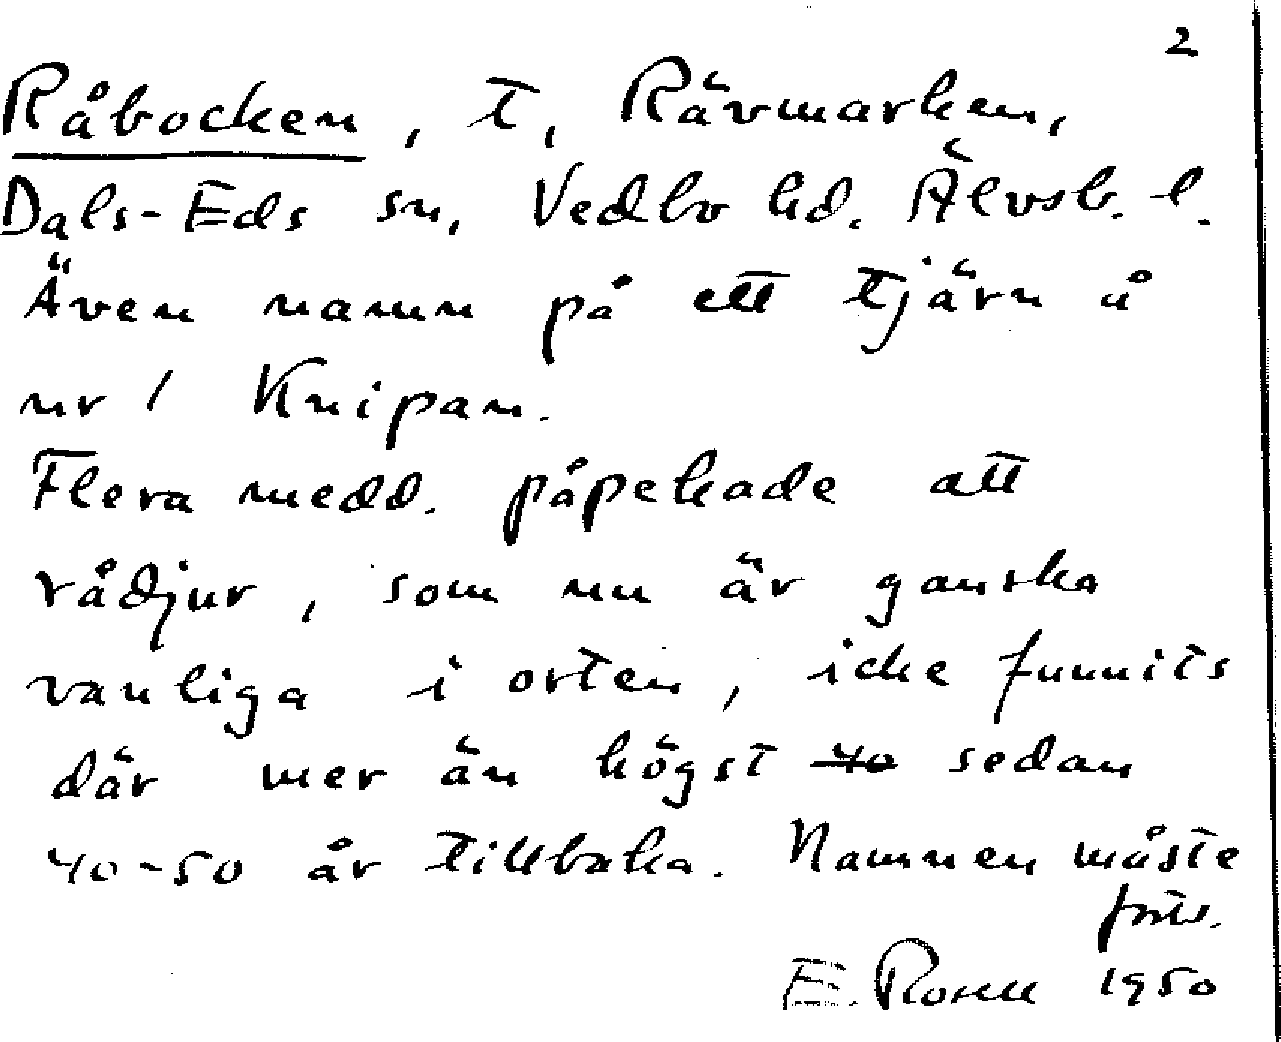 2
Råbocken, t, Rävmarken,
Dals-Eds sn, Vedbo hd. Älvsb. l.
Även namn på ett tjärn å
nr 1 Knipan.
Flera medd. påpekade att
rådjur, som nu är ganska
vanliga i orten, icke funnits
där mer än högst 40 sedan
40-50 år tillbaka. Namnen måste
forts.
E. Rosell 1950